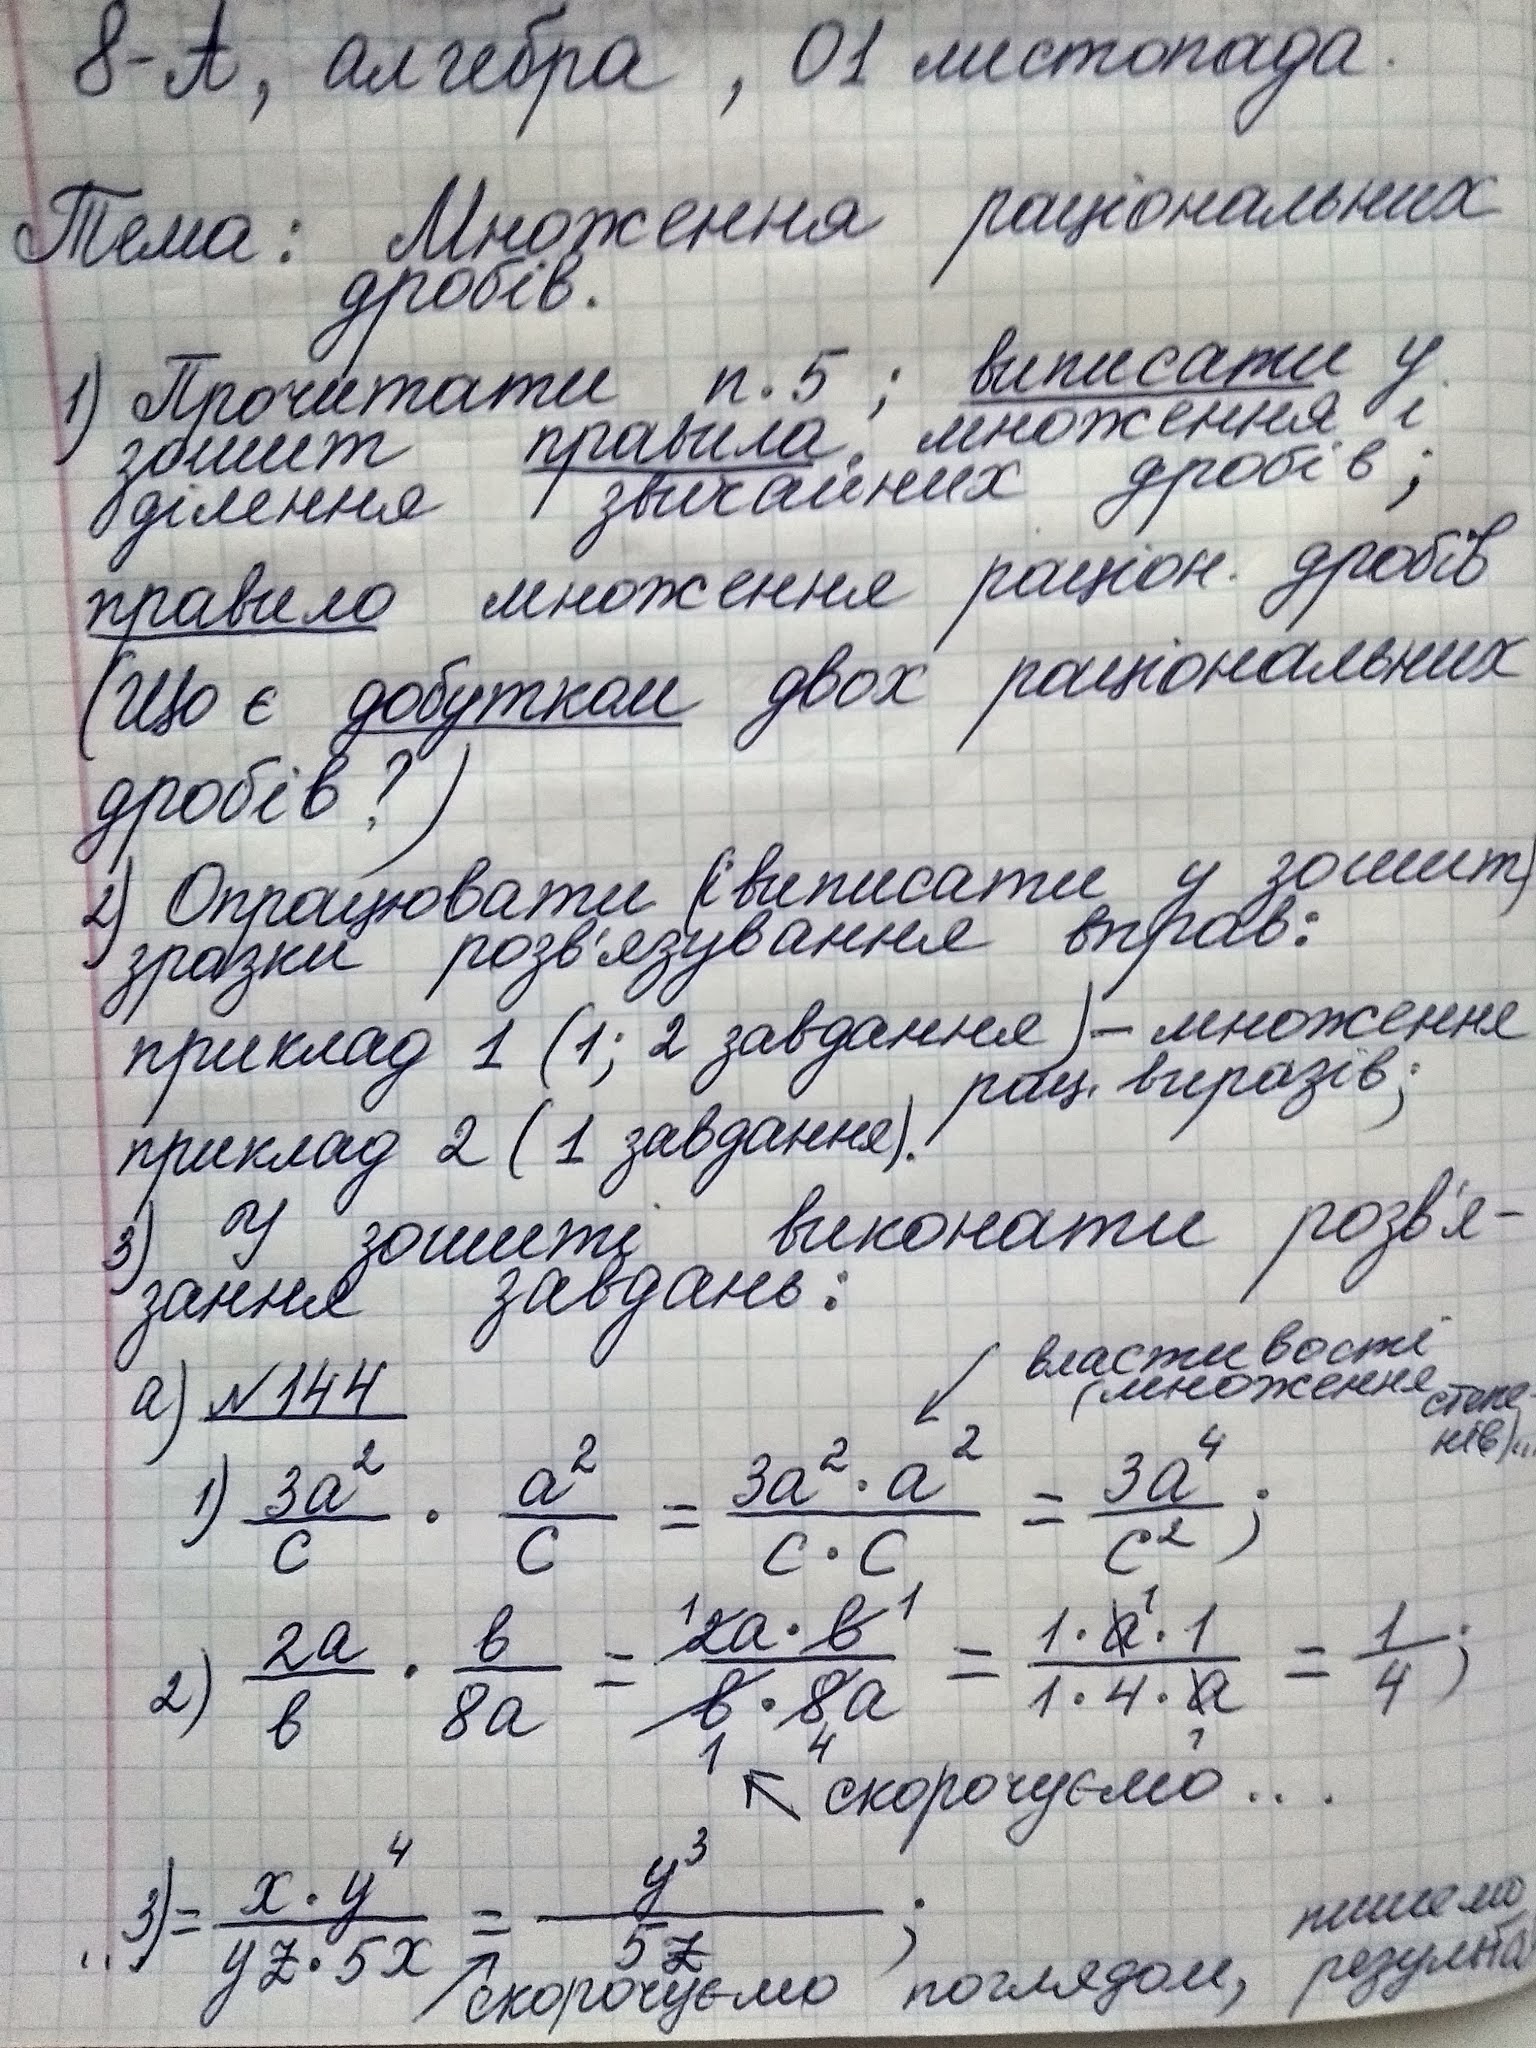 8-А, алгебра, 01 листопада.
Тема: Множення раціональних
дробів.
1) Прочитати п.5; виписати у
зошит правила множення і
ділення звичайних дробів;
правило множення раціон. дробів
(Що є добутком двох раціональних
дробів?)
2) Опрацювати (і виписати у зошит)
зразки розв'язування вправ:
приклад 1 (1; 2 завдання) – множення
рац. виразів;
приклад 2 (1 завдання).
3) У зошиті виконати розв'я-
зання завдань:
а) №144
властивості
(множення степе-
нів)...
1) 3a²/c · a²/c = 3a²·a²/c·c = 3a⁴/c²;
2) 2a/b · b/8a = 2a·b/b·8a = 1·a·1/1·4·a = 1/4;
скорочуємо...
...3) = x·y⁴/yz·5x = y³/5z;
скорочуємо поглядом, пишемо